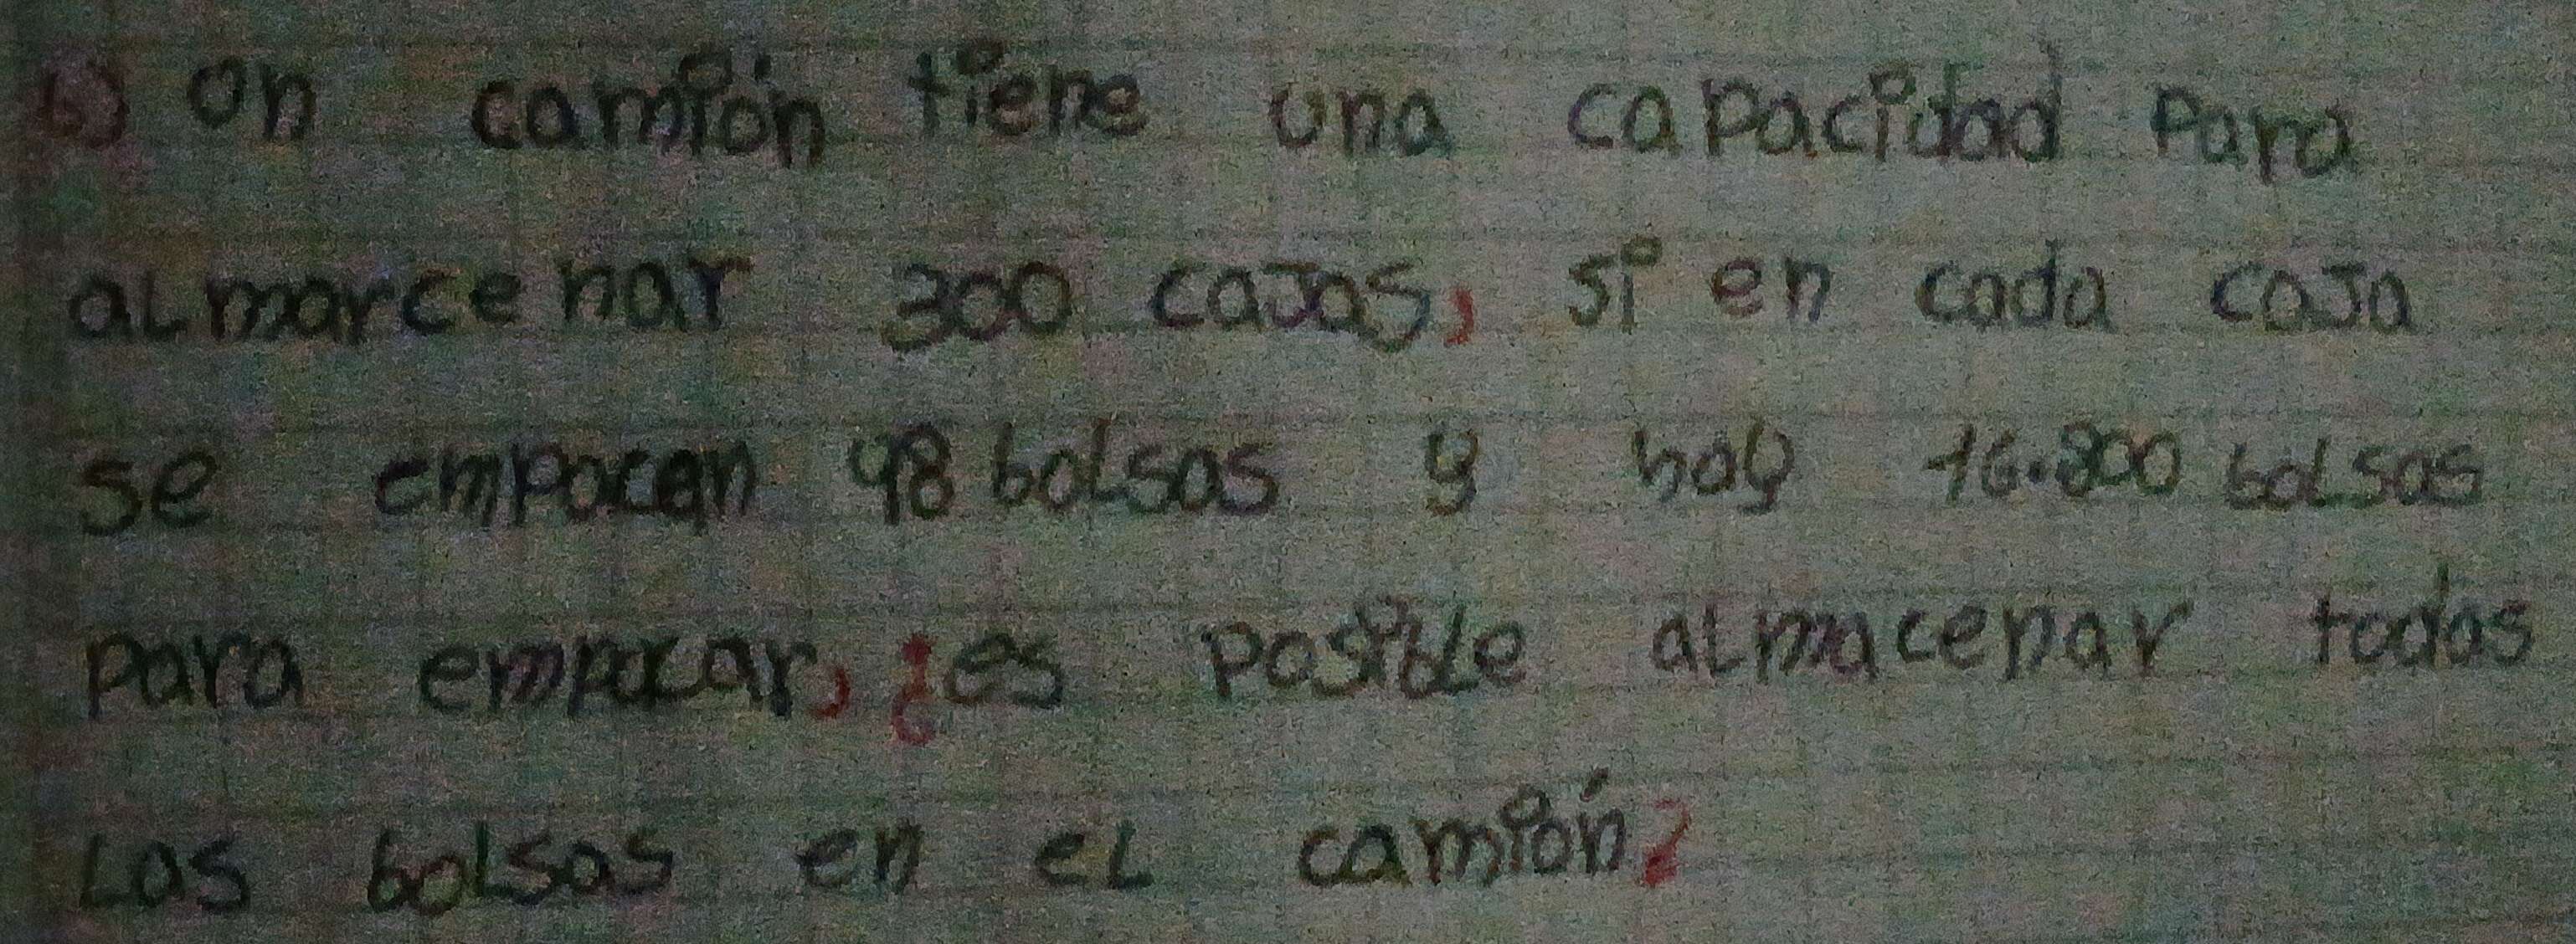 b) Un camión tiene una capacidad para
almarcenar 300 cajas, si en cada caja
se empacan 98 bolsas y hay 16.800 bolsas
para empacar, ¿es posible almacenar todas
las bolsas en el camión?